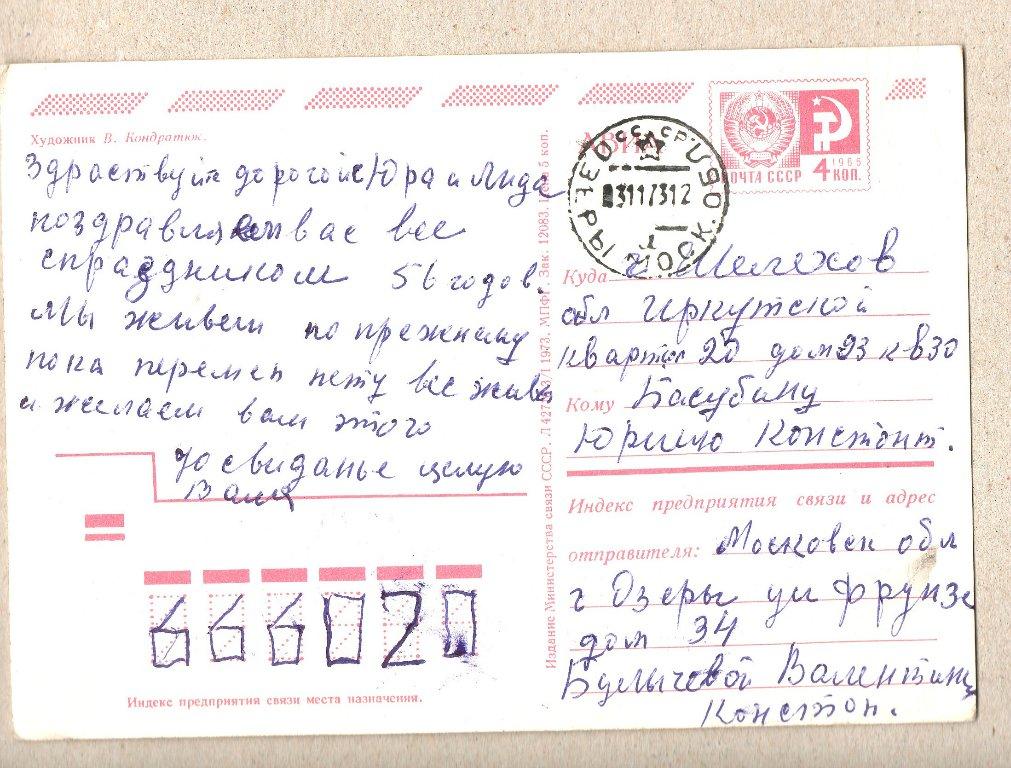 Художник В. Кондратюк.
Здраствуйте дорогой Юра и Лида
поздравляем вас все
спраздником 56 годов.
Мы живем по прежнему
пока перемен нету все живы
и желаем вам этого
до свиданье целую
Валя
Индекс предприятия связи места назначения.
666020
АВИА
ПОЧТА СССР 4 КОП.
1965
Куда г Мелехов
обл Иркутской
квартал 20 дом 23 кв 30
Кому Басубину
Юрию Констонт.
Индекс предприятия связи и адрес
отправителя: Московск обл
г Озеры ул Фрунзе
дом 34
Булычевой Валентины
Констон.